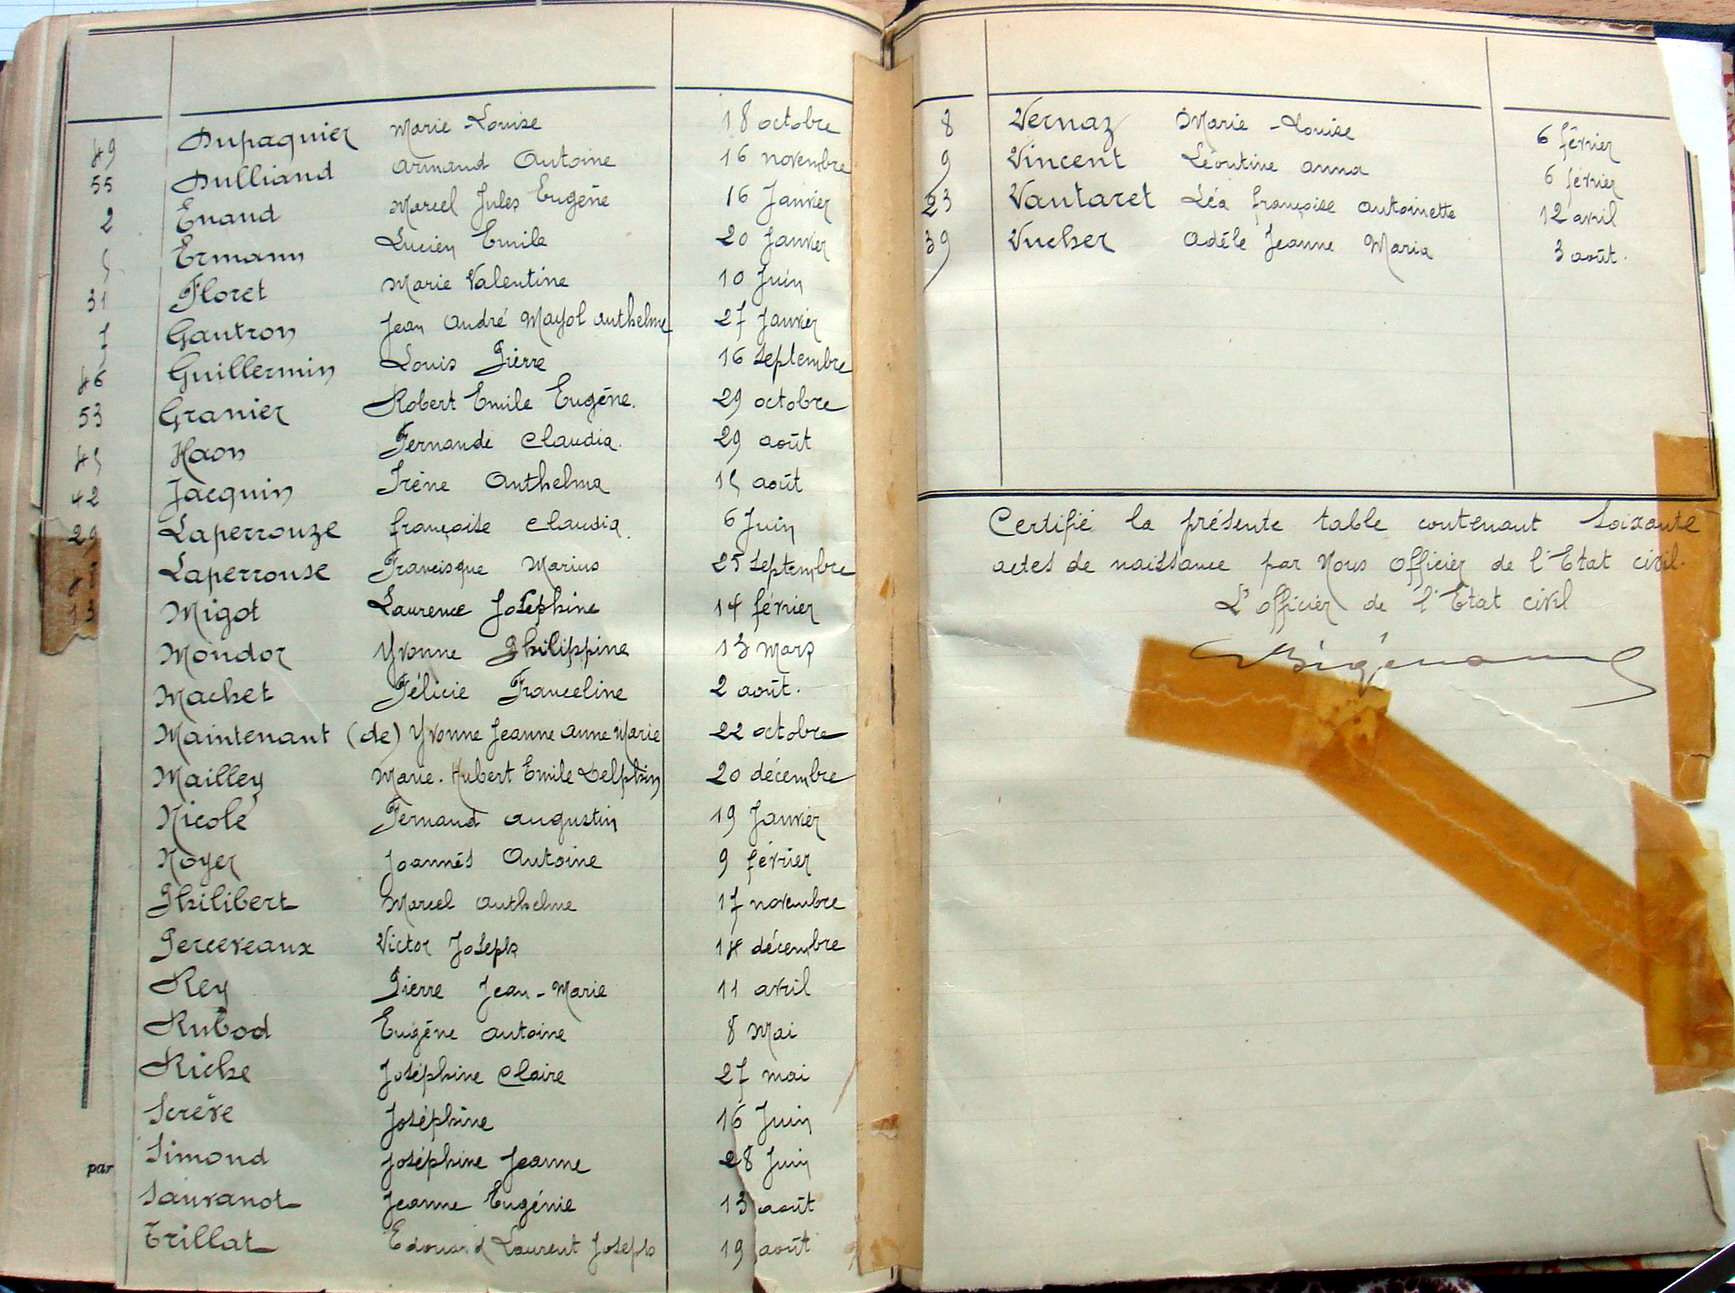 49 Dupaquier Marie-Louise 18 octobre
55 Dulliand Armand Antoine 16 novembre
2 Enand Marcel Jules Eugène 16 Janvier
5 Ermann Lucien Emile 20 Janvier
31 Floret Marie Valentine 10 Juin
7 Gautron Jean André Mayol Anthelme 27 Janvier
46 Guillermin Louis Pierre 16 Septembre
53 Granier Robert Emile Eugène. 29 octobre
45 Haon Fernande Claudia. 29 août
42 Jacquin Irène Anthelma 15 août
29 Laperrouze françoise Claudia. 6 Juin
Laperrouse Francisque Marius 25 Septembre
13 Migot Laurence Joséphine 14 février
Mondor Yvonne Philippine 13 Mars
Machet Félicie Franceline 2 août.
Maintenant (de) Yvonne Jeanne Anne Marie 22 octobre
Mailley Marie. Hubert Emile Delphin 20 décembre
Nicolé Fernand Augustin 19 Janvier
Noyer Joannès Antoine 9 février
Philibert Marcel Anthelme 17 novembre
Perceveaux Victor Joseph 14 décembre
Rey Pierre Jean-Marie 11 avril
Rubod Eugène Antoine 8 Mai
Riche Joséphine Claire 27 mai
Screve Joséphine 16 Juin
par Simond Joséphine Jeanne 28 Juin
Sauvanot Jeanne Eugénie 13 août
Trillat Edouard Laurent Joseph 19 août
8 Vernaz Marie-Louise 6 février
9 Vincent Léontine Anna 6 février
23 Vantaret Léa françoise Antoinette 12 avril
39 Vucher Adèle Jeanne Maria 3 août.
Certifié la présente table contenant Soixante
actes de naissance par Nous Officier de l'Etat civil.
L'officier de l'Etat civil